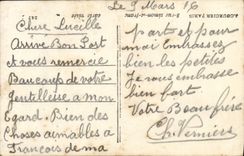 Le 9 Mars 16
Chère Lucille
Arrive Bon Port
et vous remercie
Baucoup de votre
Gentillesse a mon
Egard. Bien des
Choses aimables a
François de ma
part et pour
moi Embrassez
bien les petites
Je vous embrasse
bien fort.
Votre Beau frère
Ch.